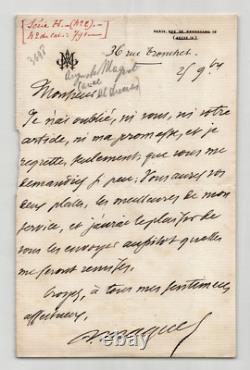 Série H.- (No 2)-
No du cat: 791-
PARIS, RUE DE
36 rue Tronchet.
Auguste Maquet
Monsieur
Je n'ai oublié, ni vous, ni votre
article, ni ma promesse, et je
regrette seulement que vous me
demandiez si peu. Vous aurez vos
deux places, les meilleures de mon
service, et j'aurai le plaisir de
vous les envoyer aussitôt qu'elles
me seront remises.
Croyez à tous mes sentiments
affectueux,
A. Maquet